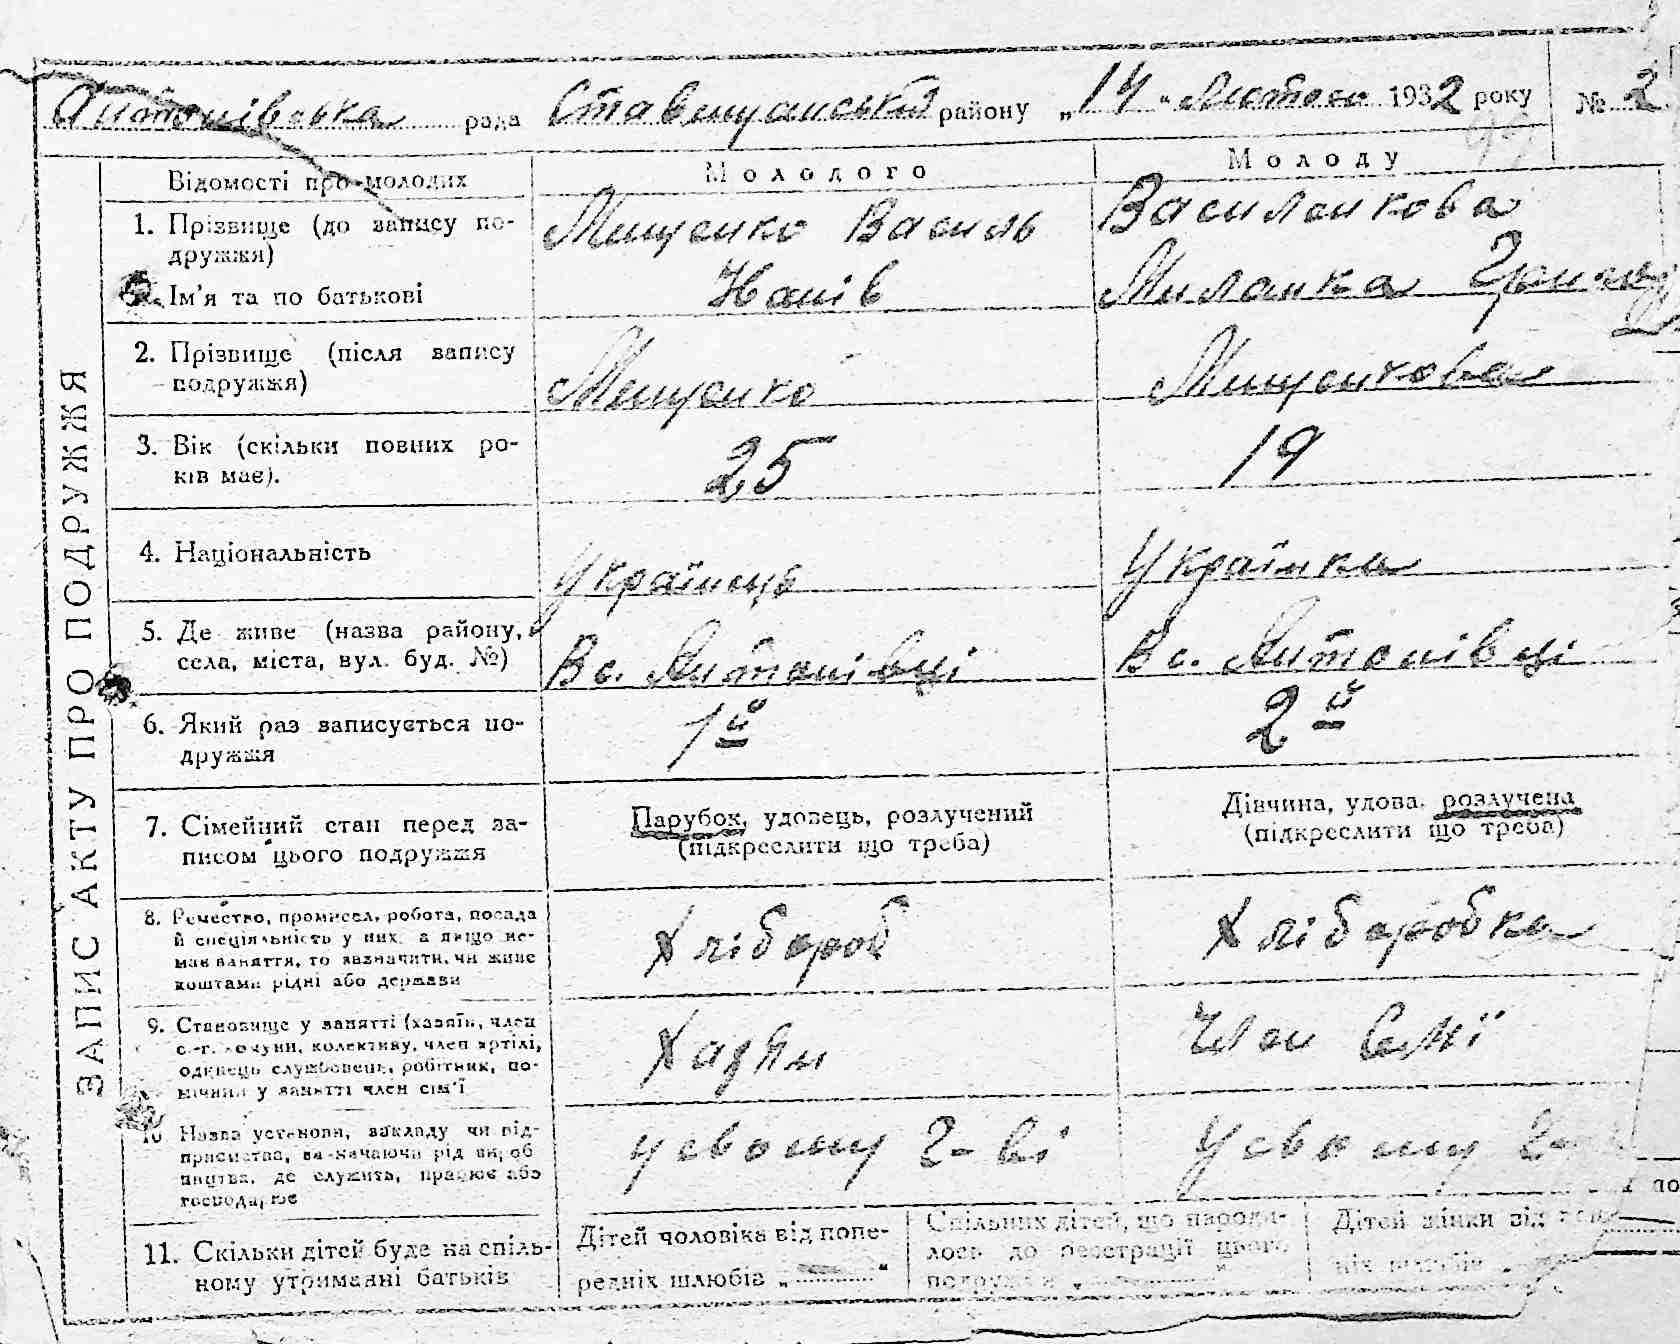 Антонівська рада Ставищанський району „14 " Лютого 1932 року № 2
Відомості про молодих Молодого Молоду
1. Прізвище (до запису по-
дружжя)
Ім'я та по батькові
Мищенко Василь
Василенкова
Миланка
2. Прізвище (після запису
подружжя)
Мищенко
Мищенкова
3. Вік (скільки повних ро-
ків має).
25
19
4. Національність
Українець
Українка
5. Де живе (назва району,
села, міста, вул. буд. №)
В с. Антонівці
В с. Антонівці
6. Який раз записується по-
дружжя
1й
2й
7. Сімейний стан перед за-
писом цього подружжя
Парубок, удовець, розлучений
(підкреслити що треба)
Дівчина, удова, розлучена
(підкреслити що треба)
8. Ремество, промисел, робота, посада
й спеціяльність у них, а якщо не-
має заняття, то зазначити, чи живе
коштами рідні або держави
Хлібороб
Хліборобка
9. Становище у занятті (хазяїн, член
с.-г. комуни, колективу, член артілі,
одинець службовець, робітник, по-
мічний у занятті член сім'ї
Член Семї
10 Назва установи, закладу чи під-
приємства, зазначаючи рід вироб
ництва, де служить, працює або
господарює
У свому г-ві
У свому
11. Скільки дітей буде на спіль-
ному утриманні батьків
Дітей чоловіка від попе-
редніх шлюбів „ "
Спільних дітей, що народи-
лось до реєстрації цього
подружжя „ "
Дітей жінки від
шлюбів „
ЗАПИС АКТУ ПРО ПОДРУЖЖЯ